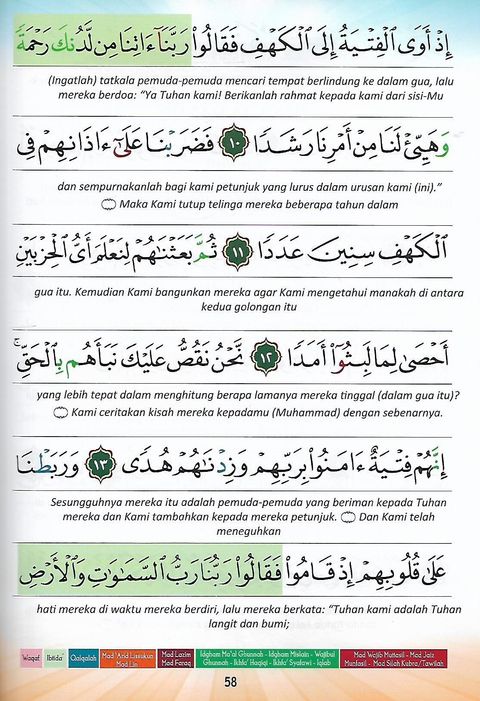 إِذْ أَوَى ٱلْفِتْيَةُ إِلَى ٱلْكَهْفِ فَقَالُوا۟ رَبَّنَآ ءَاتِنَا مِن لَّدُنكَ رَحْمَةً
(Ingatlah) tatkala pemuda-pemuda mencari tempat berlindung ke dalam gua, lalu
mereka berdoa: “Ya Tuhan kami! Berikanlah rahmat kepada kami dari sisi-Mu
وَهَيِّئْ لَنَا مِنْ أَمْرِنَا رَشَدًا ١٠ فَضَرَبْنَا عَلَىٰٓ ءَاذَانِهِمْ فِى
dan sempurnakanlah bagi kami petunjuk yang lurus dalam urusan kami (ini).”
Maka Kami tutup telinga mereka beberapa tahun dalam
ٱلْكَهْفِ سِنِينَ عَدَدًا ١١ ثُمَّ بَعَثْنَٰهُمْ لِنَعْلَمَ أَىُّ ٱلْحِزْبَيْنِ
gua itu. Kemudian Kami bangunkan mereka agar Kami mengetahui manakah di antara
kedua golongan itu
أَحْصَىٰ لِمَا لَبِثُوٓا۟ أَمَدًا ١٢ نَّحْنُ نَقُصُّ عَلَيْكَ نَبَأَهُم بِٱلْحَقِّ ۚ
yang lebih tepat dalam menghitung berapa lamanya mereka tinggal (dalam gua itu)?
Kami ceritakan kisah mereka kepadamu (Muhammad) dengan sebenarnya.
إِنَّهُمْ فِتْيَةٌ ءَامَنُوا۟ بِرَبِّهِمْ وَزِدْنَٰهُمْ هُدًى ١٣ وَرَبَطْنَا
Sesungguhnya mereka itu adalah pemuda-pemuda yang beriman kepada Tuhan
mereka dan Kami tambahkan kepada mereka petunjuk. Dan Kami telah
meneguhkan
عَلَىٰ قُلُوبِهِمْ إِذْ قَامُوا۟ فَقَالُوا۟ رَبُّنَا رَبُّ ٱلسَّمَٰوَٰتِ وَٱلْأَرْضِ
hati mereka di waktu mereka berdiri, lalu mereka berkata: “Tuhan kami adalah Tuhan
langit dan bumi;
Waqaf Ibtida' Qalqalah Mad 'Arid Lissukun Mad Lazim Idgham Ma'al Ghunnah - Idgham Mislain - Wajibul Mad Wajib Muttasil - Mad Jaiz
Mad Lin Mad Faraq Ghunnah - Ikhfa' Haqiqi - Ikhfa' Syafawi - Iqlab Munfasil - Mad Silah Kubra/Tawilah
58